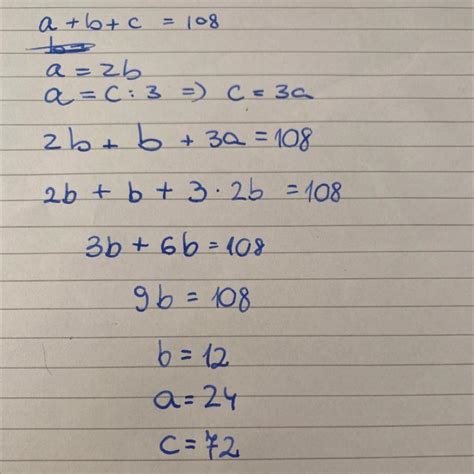 a + b + c = 108
b =
a = 2b
a = c : 3 => c = 3a
2b + b + 3a = 108
2b + b + 3 · 2b = 108
3b + 6b = 108
9b = 108
b = 12
a = 24
c = 72